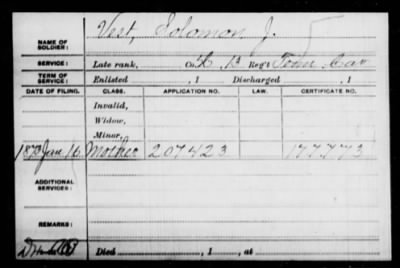 NAME OF SOLDIER: Vest, Solomon J.
SERVICE: Late rank, Co. K, 13 Reg't Tenn Cav
TERM OF SERVICE: Enlisted , 1 Discharged , 1
DATE OF FILING. CLASS. APPLICATION NO. LAW. CERTIFICATE NO.
Invalid,
Widow,
Minor,
1873 June 16 Mother 207423 177773
ADDITIONAL SERVICES:
REMARKS:
Died , 1 , at